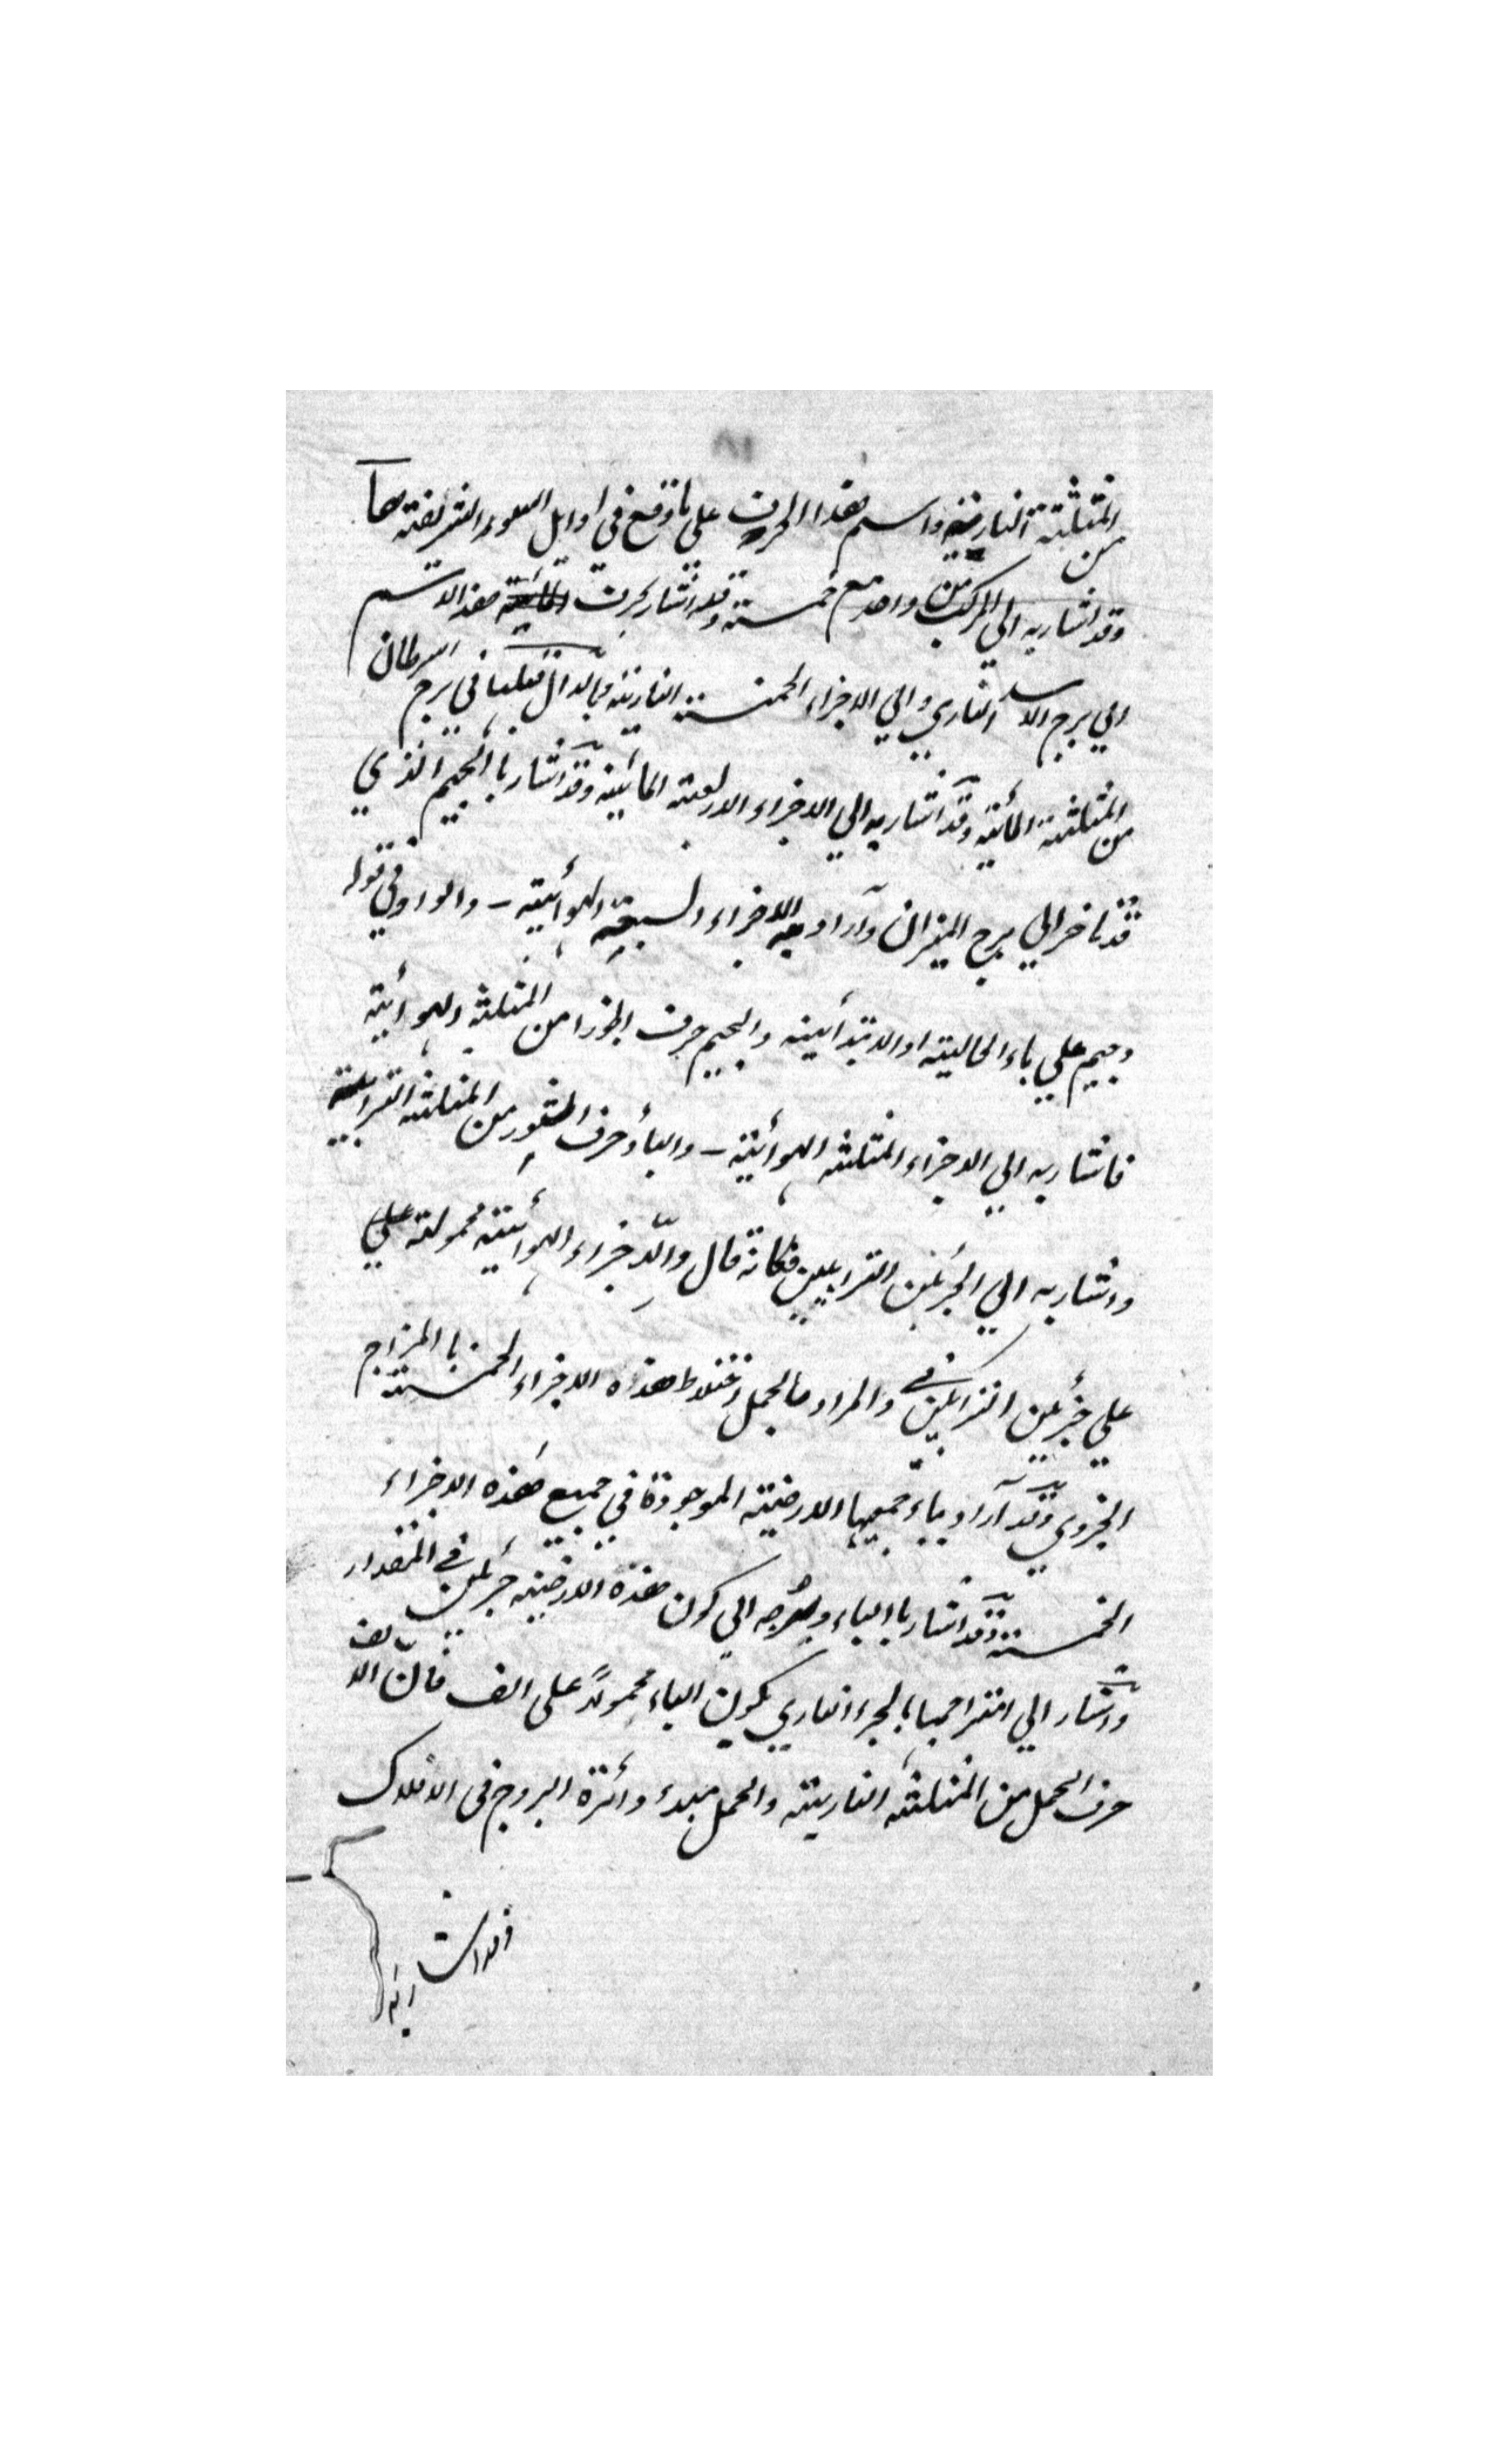 ٨١
من المثلثة النارية واسم هذا الحرف على ما وقع في اوايل السور الشريفة ها
وقد اشار به الى المركب من واحد مع خمسة وقد اشار بحرف هذا الاسم
الي برج الاسد الناري والي الاجزاء الخمسة النارية وبالدال في برج السرطان
من المثلثة المائية وقد اشار به الي الاجزاء الاربعة المائية وقد اشار باالجيم الذي
قد تاخر الي برج الميزان وآراد به الاجزاء السبعة الهوائية - والواو في قوله
وجيم علي باء الحالية او الابتدائية والجيم حرف الجوزا من المثلثة الهوائية
فاشار به الي الاجزاء الثلثه الهوائية - والبأ حرف الثور من المثلثة الترابية
واشار به الي الجزئين الترابيين فكانه قال والاجزاء الهوائية محمولة علي
علي جزئين الترابيين والمراد من الحمل اختلاط هذه الاجزاء الخمسة باالمزاج
الجزوي وقد آراد بباء جميعها الارضية الموجودة في جميع هذه الاجزاء
الخمسة وقد اشار باالباء الي كون هذه الارضية جزئين في المقدار
واشار الي امتزاجها بالجزء الناري بكون الباء محمولاً على الف فان الالف
حرف الحمل من المثلثة النارية والحمل مبدء دائرة البروج في الافلاك
وقد اشار به